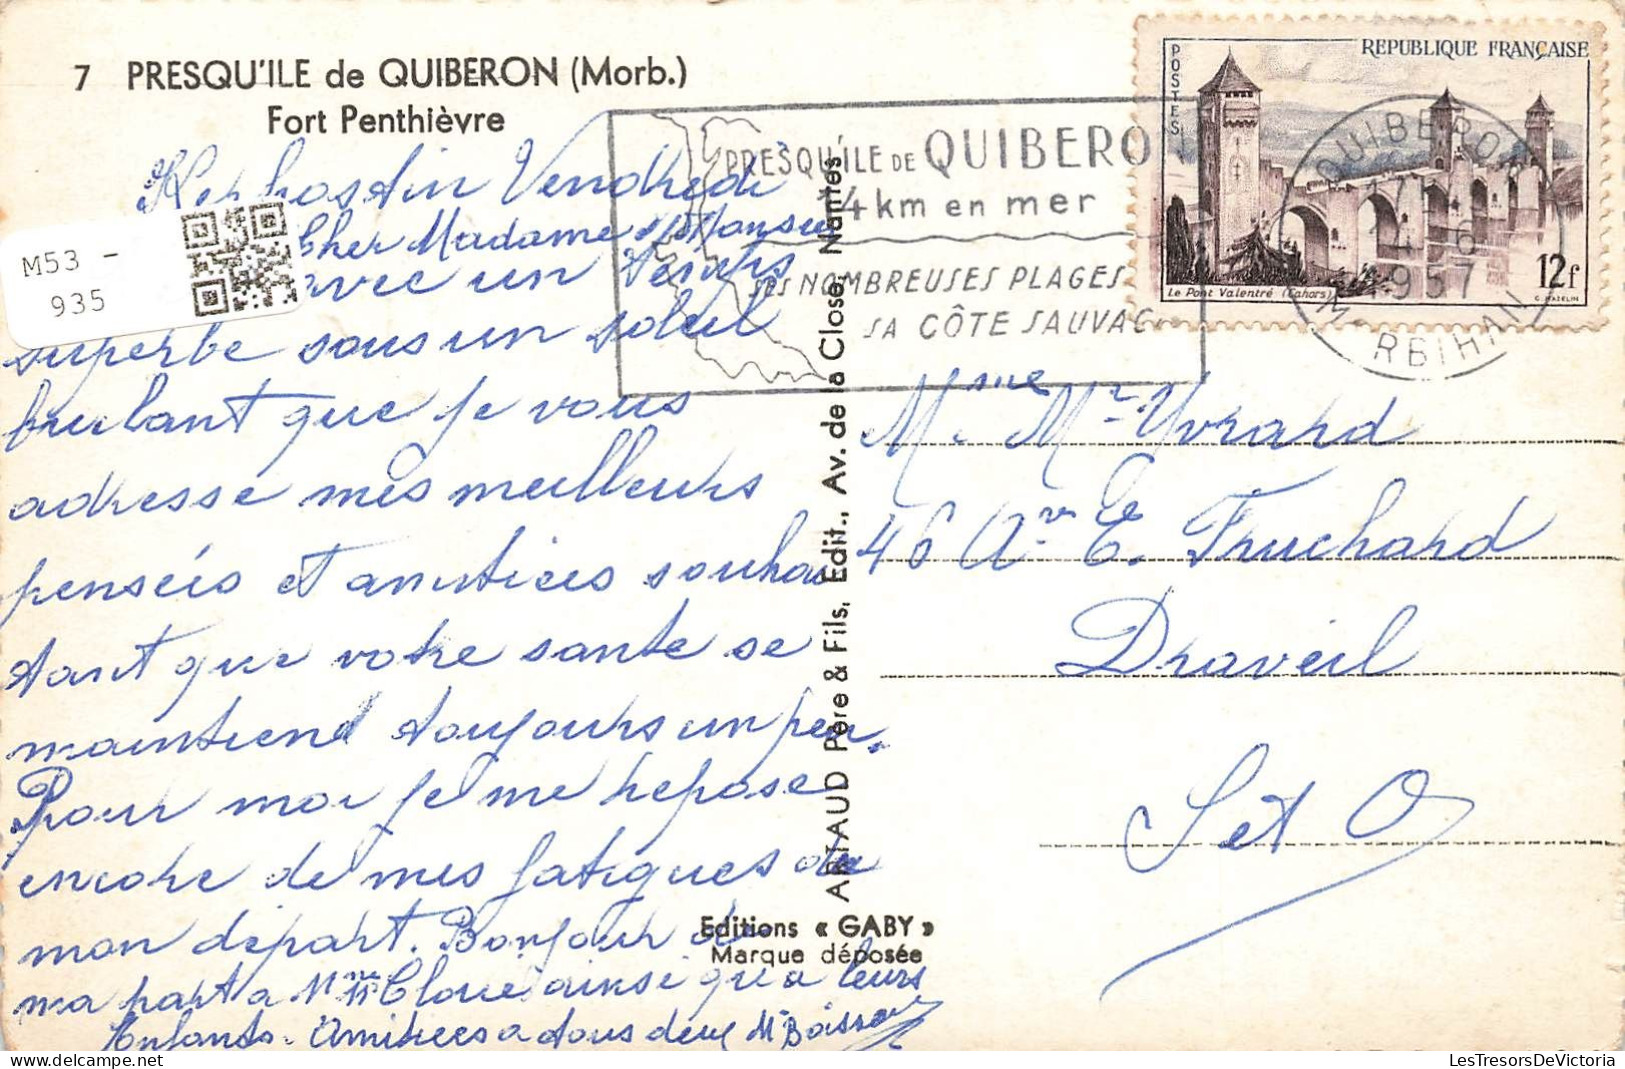 7 PRESQU'ILE de QUIBERON (Morb.)
Fort Penthièvre
Kerhostin Vendredi
Cher Madame Monsieur
avec un temps
superbe sous un soleil
brulant que je vous
adresse mes meilleurs
penseés et amitiées souhai
tant que votre santé se
maintiend toujours un peu.
Pour moi je me repose
encore de mes fatigues du
mon départ. Bonjour de
ma part a Mme Mr Cloue ainsi qu'a leurs
Enfants. Amitiées a tous deux
M53 -
935
PRESQU'ILE DE QUIBERO
14 km en mer
SES NOMBREUSES PLAGES
SA CÔTE SAUVAG
REPUBLIQUE FRANÇAISE
POSTES
Le Pont Valentré (Cahors)
12f
C. MAZELIN
QUIBERON
6
1957
MORBIHAN
ARTAUD Père & Fils, Edit., Av. de la Close, Nantes
Editions « GABY »
Marque déposée
Mme Mr Yvrard
46 Av E. Fruchard
Draveil
S et O
LesTresorsDeVictoria
M53 - 935
LesTresorsDeVictoria.com